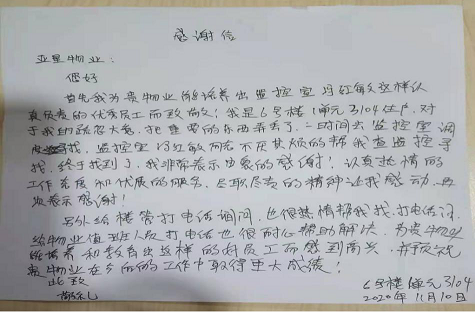 感谢信
亚星物业：
您好
首先我为贵物业能培养出监控室冯红敏这样认
真负责的优秀员工而致敬！我是6号楼1单元3104住户，对
于我的疏忽大意，把重要的东西弄丢了，一时间去监控室调
监控寻找，监控室冯红敏同志不厌其烦的帮我查监控寻
找，终于找到了，我非常表示由衷的感谢！认真热情的
工作态度和优质的服务，尽职尽责的精神让我感动，再
次表示感谢！
另外给楼管打电话询问，也很热情帮我找，打电话
给物业值班人员打电话也很耐心帮助解决，为贵物业
能培养和教育出这样的好员工而感到高兴，并预祝
贵物业在今后的工作中取得重大成绩！
此致
敬礼
6号楼1单元3104
2020年11月10日